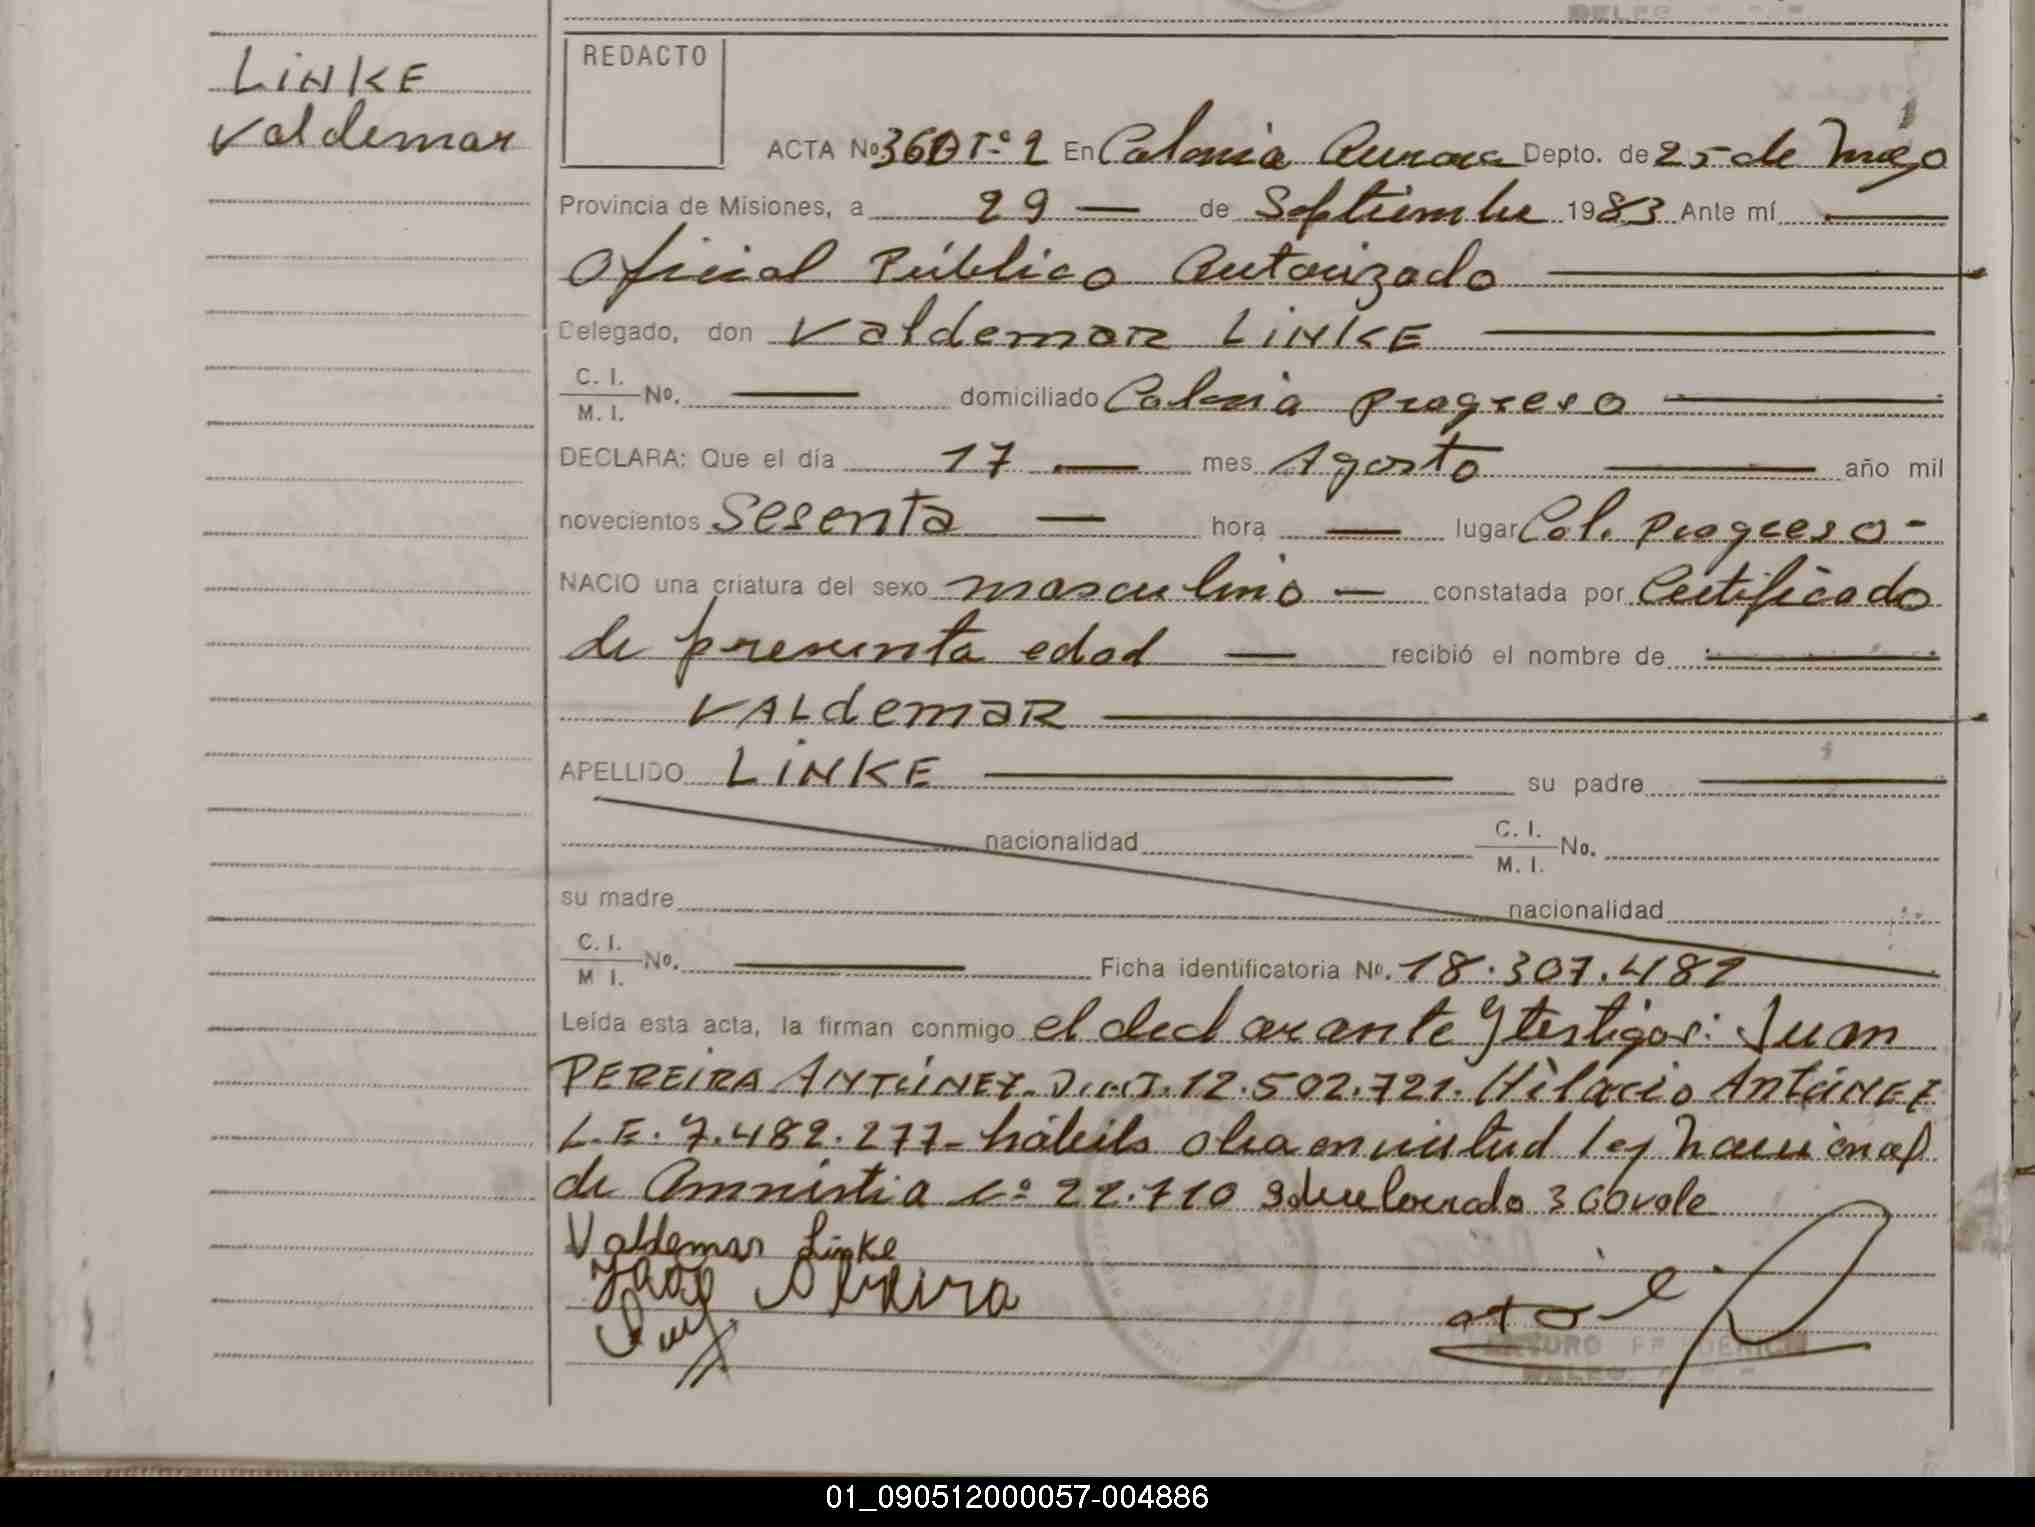 LINKE
Valdemar
REDACTO
ACTA No 360 T-º 2 En Colonia Aurora Depto. de 25 de Mayo
Provincia de Misiones, a 29 — de Septiembre 1983 Ante mí —
Oficial Público Autorizado —
Delegado, don Valdemar LINKE —
C. I.
M. I. No. — domiciliado Colonia progreso —
DECLARA: Que el día 17 — mes Agosto — año mil
novecientos Sesenta — hora — lugar Col. progreso -
NACIO una criatura del sexo masculino — constatada por Certificado
de presunta edad — recibió el nombre de —
VALdemAR —
APELLIDO LINKE — su padre —
nacionalidad C. I.
M. I. No.
su madre nacionalidad
C. I.
M I. No. — Ficha identificatoria No. 18.307.482
Leída esta acta, la firman conmigo el declarante y testigos: Juan
PEREIRA ANTÚNEZ D.N.I. 12.502.721. Hilacio ANTÚNEZ
L.E. 7.482.277- hábiles obra en virtud ley nacional
de Amnistia nº 22.710 360 vale
Valdemar Linke
ARTURO
DELEG.
01_090512000057-004886